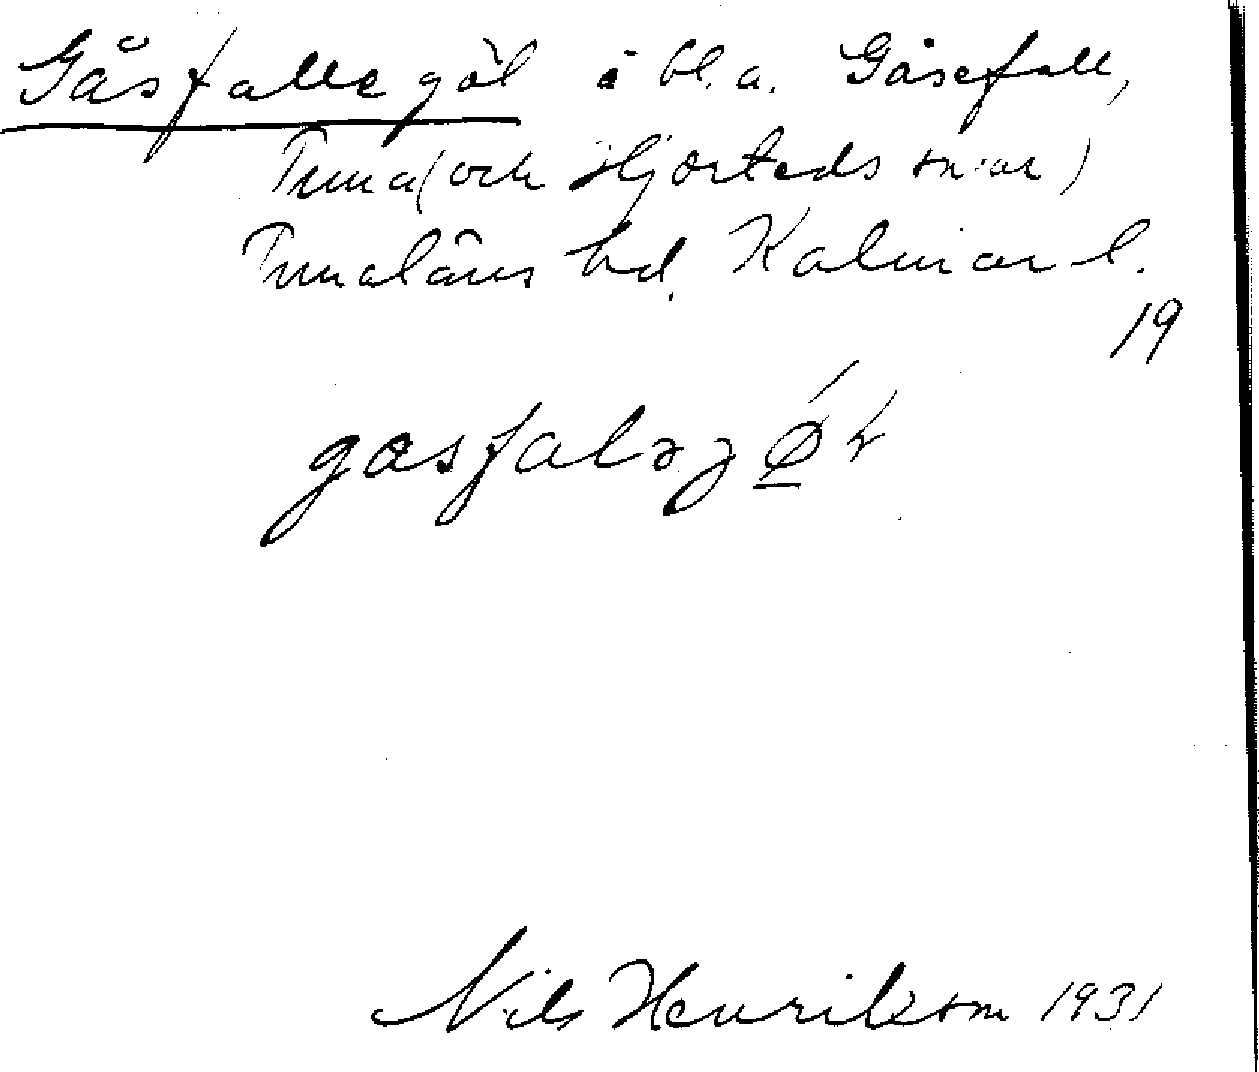 Gåsfallegöl i bl.a. Gåsefall,
Tuna (och Hjorteds sn:ar)
Tunaläns hd. Kalmar l.
19
Nils Henrikson 1931